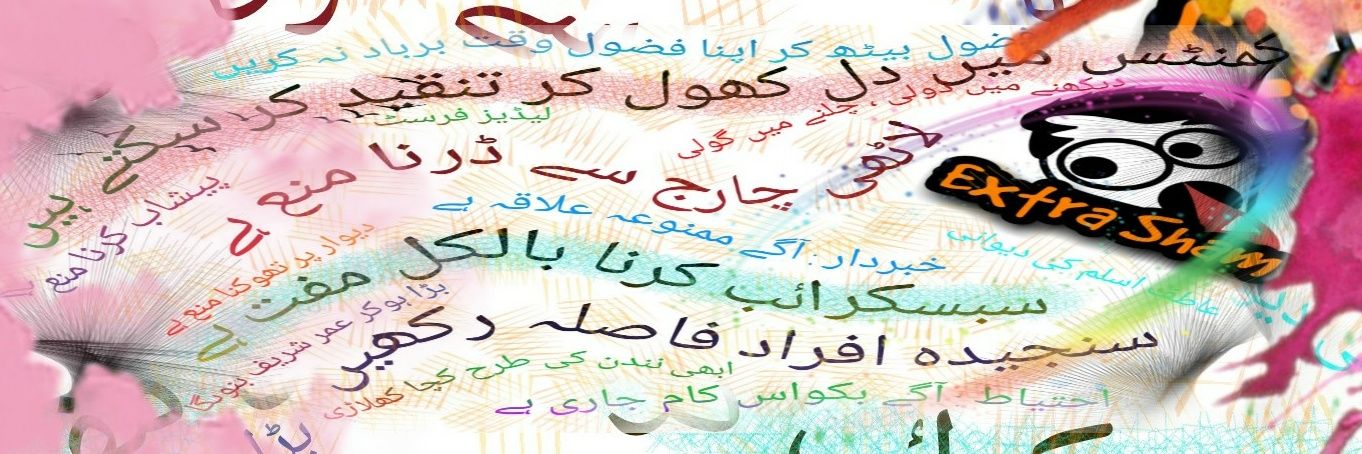 فضول بیٹھ کر اپنا فضول وقت برباد نہ کریں
کمنٹس میں دل کھول کر تنقید کر سکتے ہیں
دیکھنے میں ڈولی ، چلنے میں گولی
لیڈیز فرسٹ
لاٹھی چارج سے ڈرنا منع ہے
Extra Sham
پیشاب کرنا منع ہے
خبردار : آگے ممنوعہ علاقہ ہے
عاطف اسلم کی دیوانی
دیوار پر تھوکنا منع ہے
سبسکرائب کرنا بالکل مفت ہے
بڑا ہو کر عمر شریف بنوں گا
سنجیدہ افراد فاصلہ رکھیں
ابھی تندن کی طرح کچا کھلاڑی
احتیاط : آگے بکواس کام جاری ہے
بڑا